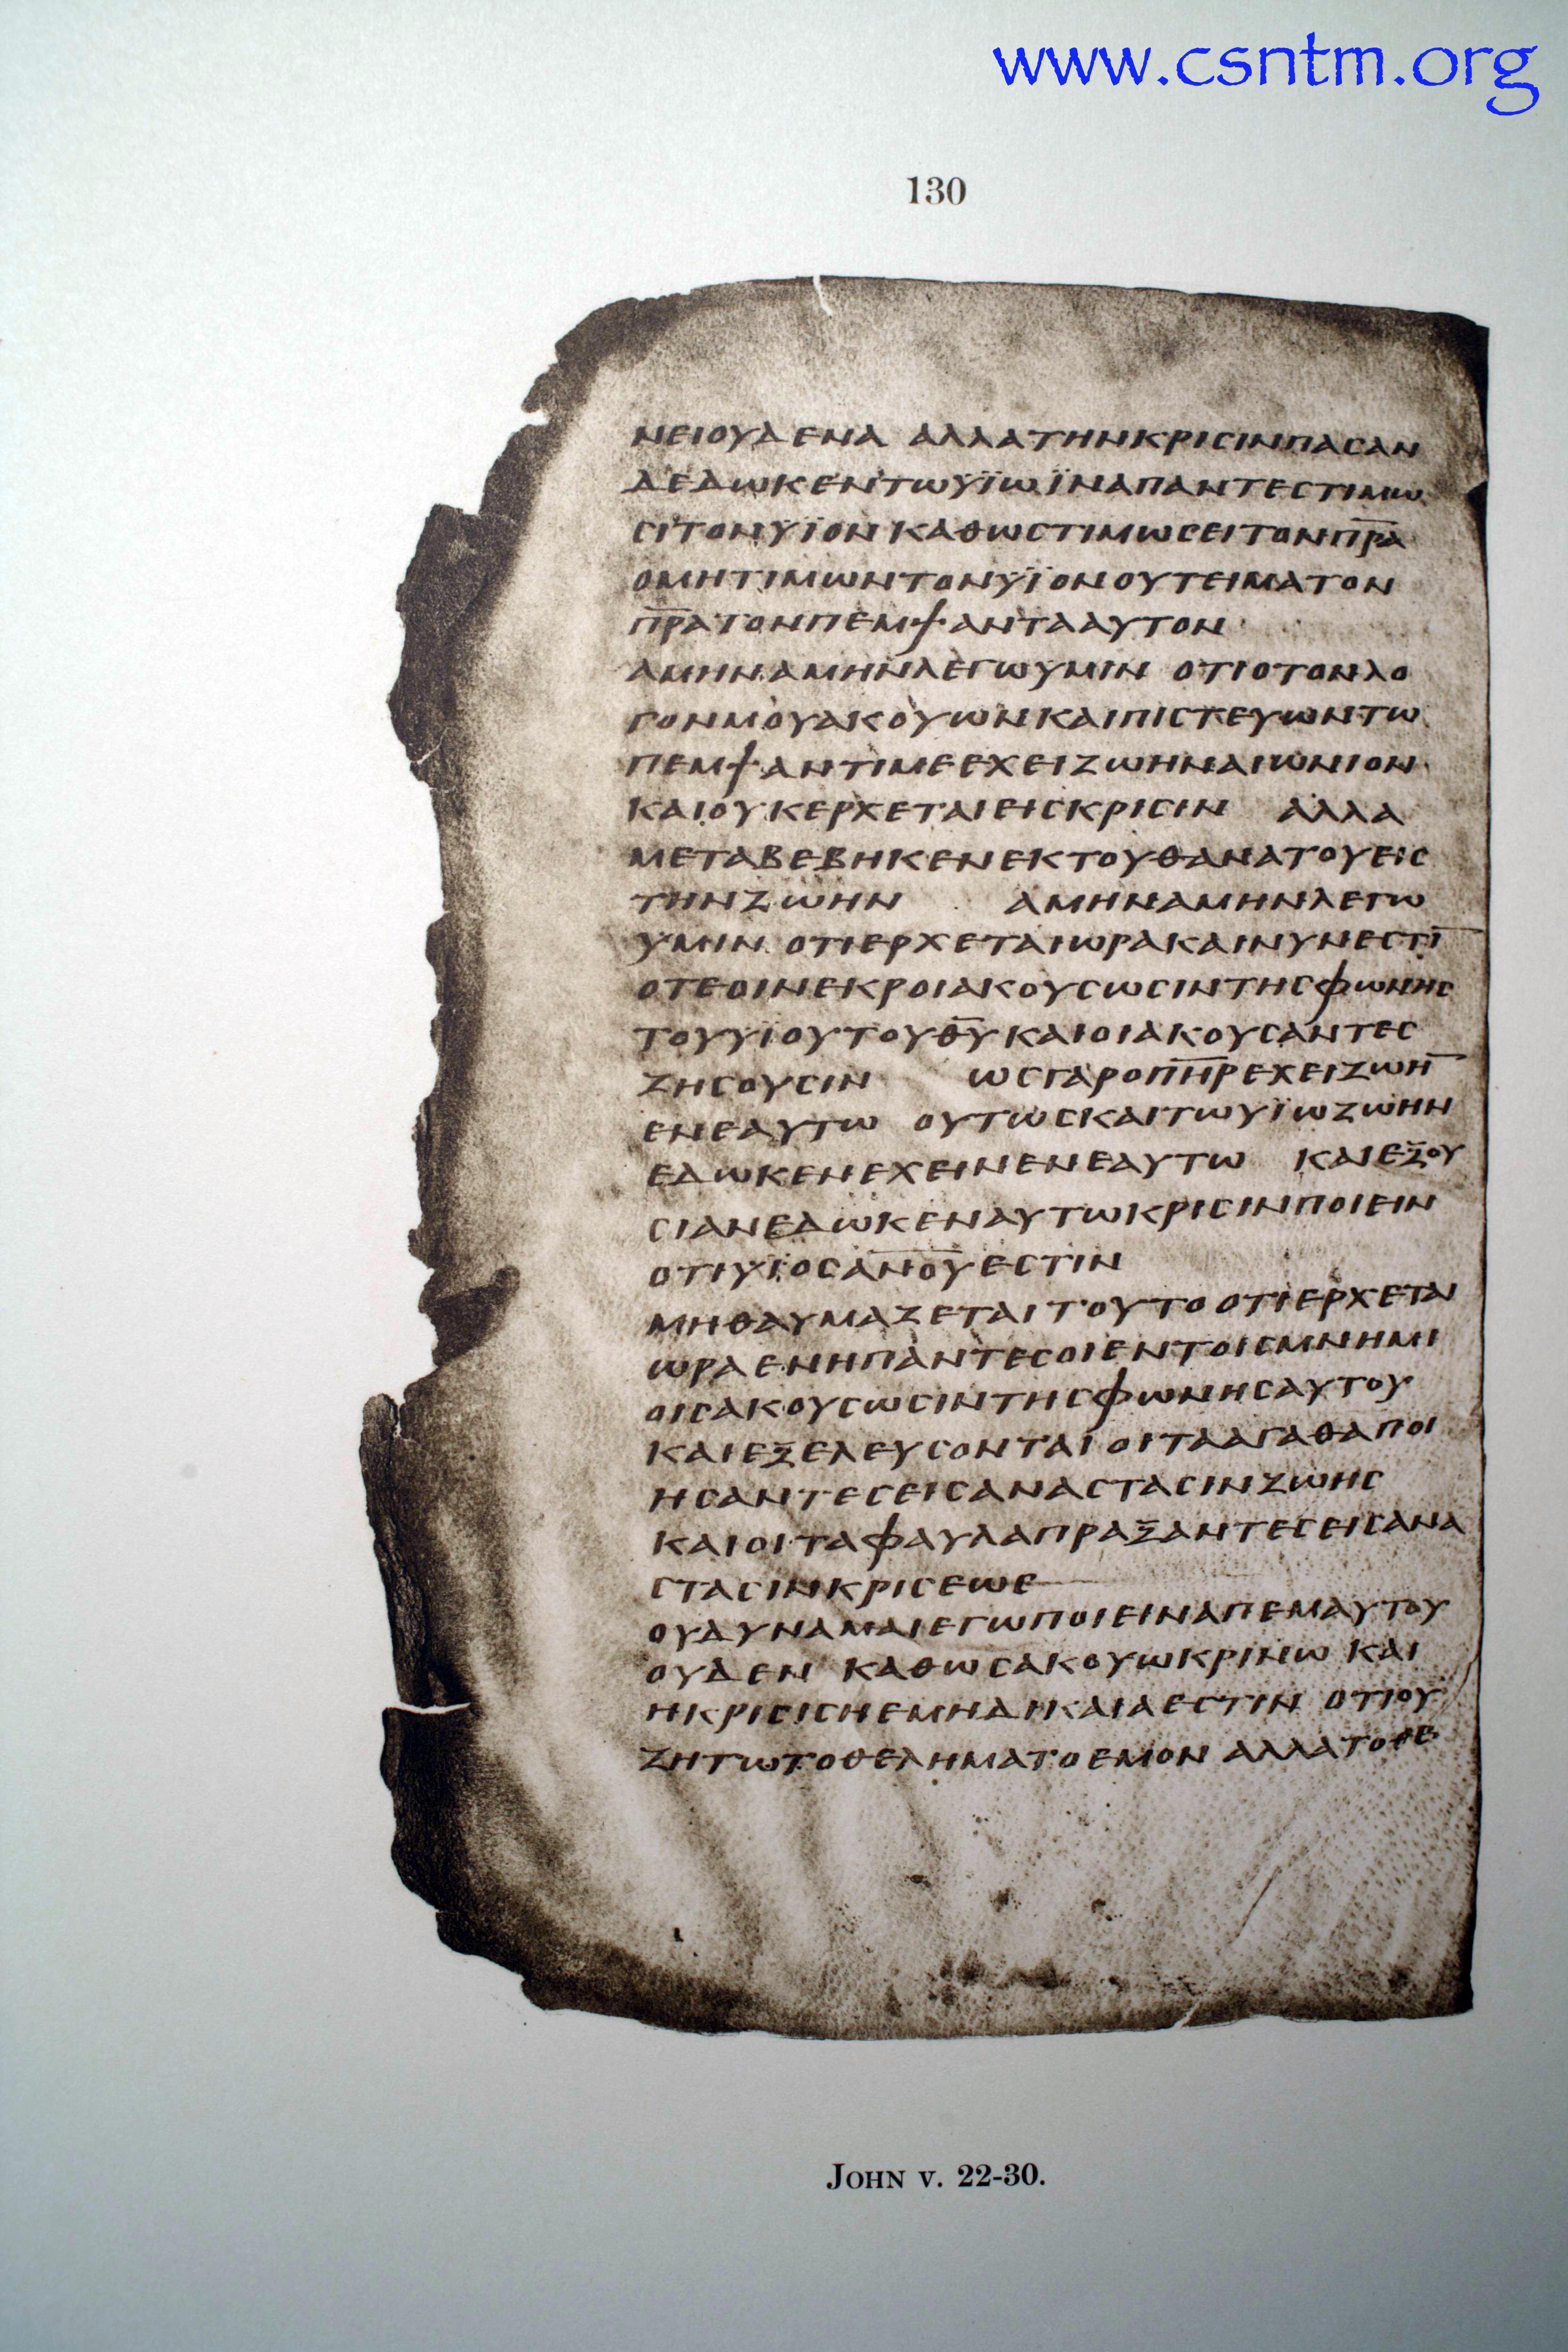 www.csntm.org
130
ΝΕΙΟΥΔΕΝΑ ΑΛΛΑΤΗΝΚΡΙCΙΝΠΑCΑΝ
ΔΕΔωΚΕΝΤωΥΪω ΪΝΑΠΑΝΤΕCΤΙΜω
CΙΤΟΝΥΪΟΝ ΚΑΘωCΤΙΜωCΕΙΤΟΝΠ̅Ρ̅Α̅
ΟΜΗΤΙΜωΝΤΟΝΥΪΟΝΟΥΤΕΙΜΑΤΟΝ
Π̅Ρ̅Α̅ΤΟΝΠΕΜΨΑΝΤΑΑΥΤΟΝ·
ΑΜΗΝΑΜΗΝΛΕΓωΥΜΙΝ ΟΤΙΟΤΟΝΛΟ
ΓΟΝΜΟΥΑΚΟΥωΝΚΑΙΠΙCΤΕΥωΝΤω
ΠΕΜΨΑΝΤΙΜΕΕΧΕΙΖωΗΝΑΙωΝΙΟΝ·
ΚΑΙΟΥΚΕΡΧΕΤΑΙΕΙCΚΡΙCΙΝ ΑΛΛΑ
ΜΕΤΑΒΕΒΗΚΕΝΕΚΤΟΥΘΑΝΑΤΟΥΕΙC
ΤΗΝΖωΗΝ ΑΜΗΝΑΜΗΝΛΕΓω
ΥΜΙΝ ΟΤΙΕΡΧΕΤΑΙωΡΑΚΑΙΝΥΝΕCΤΙ̅
ΟΤΕΟΙΝΕΚΡΟΙΑΚΟΥCωCΙΝΤΗCΦωΝΗC
ΤΟΥΥΪΟΥΤΟΥΘ̅Υ̅ΚΑΙΟΙΑΚΟΥCΑΝΤΕC
ΖΗCΟΥCΙΝ ωCΓΑΡΟΠ̅Η̅Ρ̅ΕΧΕΙΖωΗ̅
ΕΝΕΑΥΤω ΟΥΤωCΚΑΙΤωΥΪωΖωΗΝ
ΕΔωΚΕΝΕΧΕΙΝΕΝΕΑΥΤω ΚΑΙΕΞΟΥ
CΙΑΝΕΔωΚΕΝΑΥΤωΚΡΙCΙΝΠΟΙΕΙΝ
ΟΤΙΥΪΟCΑ̅Ν̅Ο̅Υ̅ΕCΤΙΝ
ΜΗΘΑΥΜΑΖΕΤΑΙΤΟΥΤΟΟΤΙΕΡΧΕΤΑΙ
ωΡΑΕΝΗΠΑΝΤΕCΟΙΕΝΤΟΙCΜΝΗΜΙ
ΟΙCΑΚΟΥCωCΙΝΤΗCΦωΝΗCΑΥΤΟΥ
ΚΑΙΕΞΕΛΕΥCΟΝΤΑΙΟΙΤΑΑΓΑΘΑΠΟΙ
ΗCΑΝΤΕCΕΙCΑΝΑCΤΑCΙΝΖωΗC
ΚΑΙΟΙΤΑΦΑΥΛΑΠΡΑΞΑΝΤΕCΕΙCΑΝΑ
CΤΑCΙΝΚΡΙCΕωC
ΟΥΔΥΝΑΜΑΙΕΓωΠΟΙΕΙΝΑΠΕΜΑΥΤΟΥ
ΟΥΔΕΝ ΚΑΘωCΑΚΟΥωΚΡΙΝω ΚΑΙ
ΗΚΡΙCΙCΗΕΜΗΔΙΚΑΙΑΕCΤΙΝ ΟΤΙΟΥ
ΖΗΤωΤΟΘΕΛΗΜΑΤΟΕΜΟΝ ΑΛΛΑΤΟΘΕ
JOHN V. 22-30.